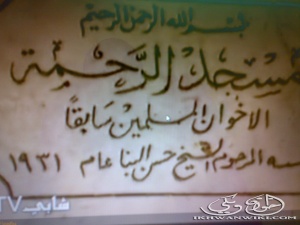 بسم الله الرحمن الرحيم
مسجد الرحمة
الاخوان المسلمين سابقاً
سسه المرحوم الشيخ حسن البنا عام ١٩٣١
شابي TV
IKHWANWIKI.COM